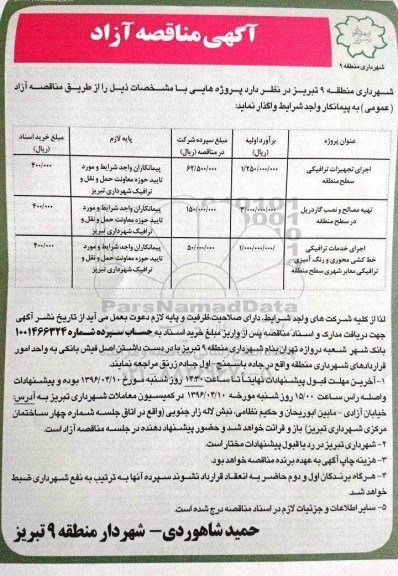 آگهی مناقصه آزاد
شهرداری منطقه ۹
شهرداری منطقه ۹ تبریز در نظر دارد پروژه هایی با مشخصات ذیل را از طریق مناقصه آزاد
(عمومی) به پیمانکار واجد شرایط واگذار نماید:
عنوان پروژه | برآورد اولیه (ریال) | مبلغ سپرده شرکت در مناقصه (ریال) | پایه لازم | مبلغ خرید اسناد (ریال)
اجرای تجهیزات ترافیکی سطح منطقه | ۱/۲۵۰/۰۰۰/۰۰۰ | ۶۲/۵۰۰/۰۰۰ | پیمانکاران واجد شرایط و مورد تایید حوزه معاونت حمل و نقل و ترافیک شهرداری تبریز | ۴۰۰/۰۰۰
تهیه مصالح و نصب گاردریل در سطح منطقه | ۳/۰۰۰/۰۰۰/۰۰۰ | ۱۵۰/۰۰۰/۰۰۰ | پیمانکاران واجد شرایط و مورد تایید حوزه معاونت حمل و نقل و ترافیک شهرداری تبریز | ۴۰۰/۰۰۰
اجرای خدمات ترافیکی خط کشی محوری و رنگ آمیزی ترافیکی معابر شهری سطح منطقه | ۱/۰۰۰/۰۰۰/۰۰۰ | ۵۰/۰۰۰/۰۰۰ | پیمانکاران واجد شرایط و مورد تایید حوزه معاونت حمل و نقل و ترافیک شهرداری تبریز | ۴۰۰/۰۰۰
ParsNamadData
لذا از کلیه شرکت های واجد شرایط، دارای صلاحیت، ظرفیت و پایه لازم دعوت بعمل می آید از تاریخ نشر آگهی
جهت دریافت مدارک و اسناد مناقصه پس از واریز مبلغ خرید اسناد به حساب سپرده شماره ۱۰۰۱۴۶۶۳۲۴
بانک شهر شعبه دروازه تهران بنام شهرداری منطقه ۹ تبریز با در دست داشتن اصل فیش بانکی به واحد امور
قراردادهای شهرداری منطقه واقع در جاده باسمنج- اول جاده زرنق مراجعه نمایند.
۱- آخرین مهلت قبول پیشنهادات نهایتاً تا ساعت ۱۴:۳۰ روز شنبه مورخ ۱۳۹۶/۰۴/۱۰ بوده و پیشنهادات
واصله راس ساعت ۱۵/۰۰ روز شنبه مورخه ۱۳۹۶/۰۴/۱۰ در کمیسیون معاملات شهرداری تبریز به آدرس:
خیابان آزادی - مابین ابوریحان و حکیم نظامی، نبش لاله زار جنوبی (واقع در اتاق جلسه شماره چهار ساختمان
مرکزی شهرداری تبریز) باز و قرائت خواهد شد و حضور پیشنهاد دهنده در جلسه مناقصه آزاد است.
۲- شهرداری تبریز در رد یا قبول پیشنهادات مختار است.
۳- هزینه چاپ آگهی به عهده برنده مناقصه خواهد بود.
۴- هرگاه برندگان اول و دوم حاضر به انعقاد قرارداد نشوند سپرده آنها به ترتیب به نفع شهرداری ضبط
خواهد شد.
۵- سایر اطلاعات و جزئیات لازم در اسناد مناقصه درج شده است.
حمید شاهوردی- شهردار منطقه ۹ تبریز